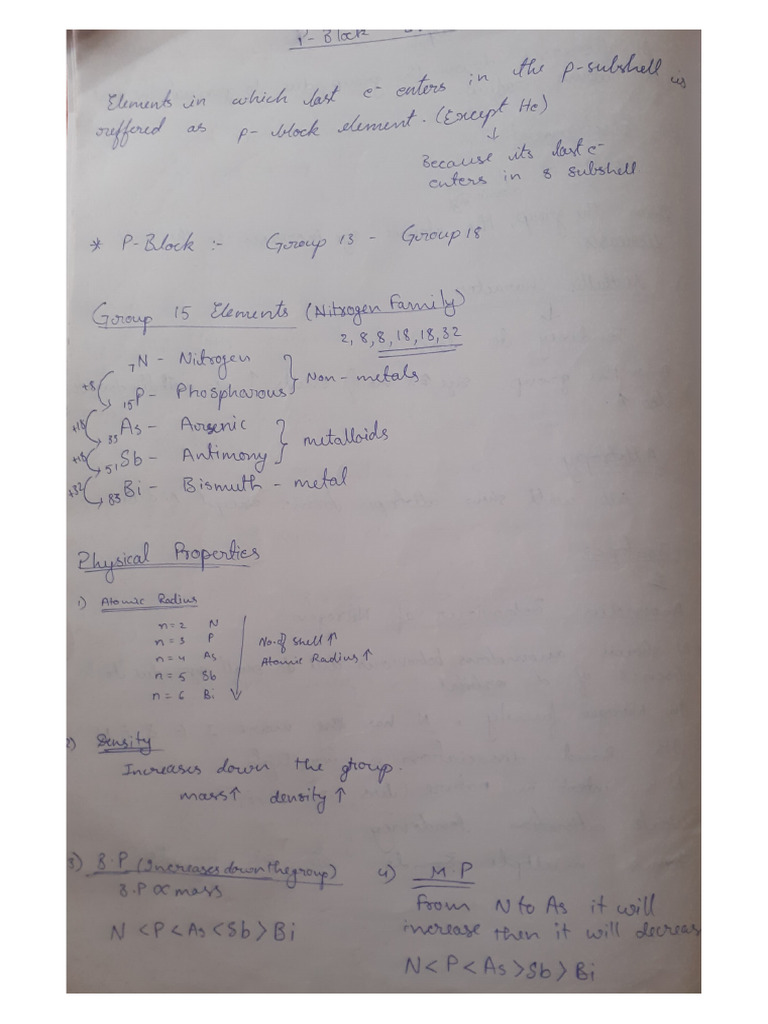 P-Block
Elements in which last e- enters in the p-subshell is
reffered as p-block element. (Except He)
↓
Because its last e-
enters in s subshell
* P-Block :- Group 13 - Group 18
Group 15 Elements (Nitrogen Family)
2, 8, 8, 18, 18, 32
7N - Nitrogen
+8 15P - Phospharous } Non-metals
+18 33As - Aorsenic
+18 51Sb - Antimony } metalloids
+32 83Bi - Bismuth - metal
Physical Properties
1) Atomic Radius
n=2 N
n=3 P No. of shell ↑
n=4 As Atomic Radius ↑
n=5 Sb
n=6 Bi
2) Density
Increases down the group.
mass↑ density↑
3) B.P (Increases down the group)
B.P ∝ mass
N < P < As < Sb > Bi
4) M.P
from N to As it will
increase then it will decreas
N < P < As > Sb > Bi